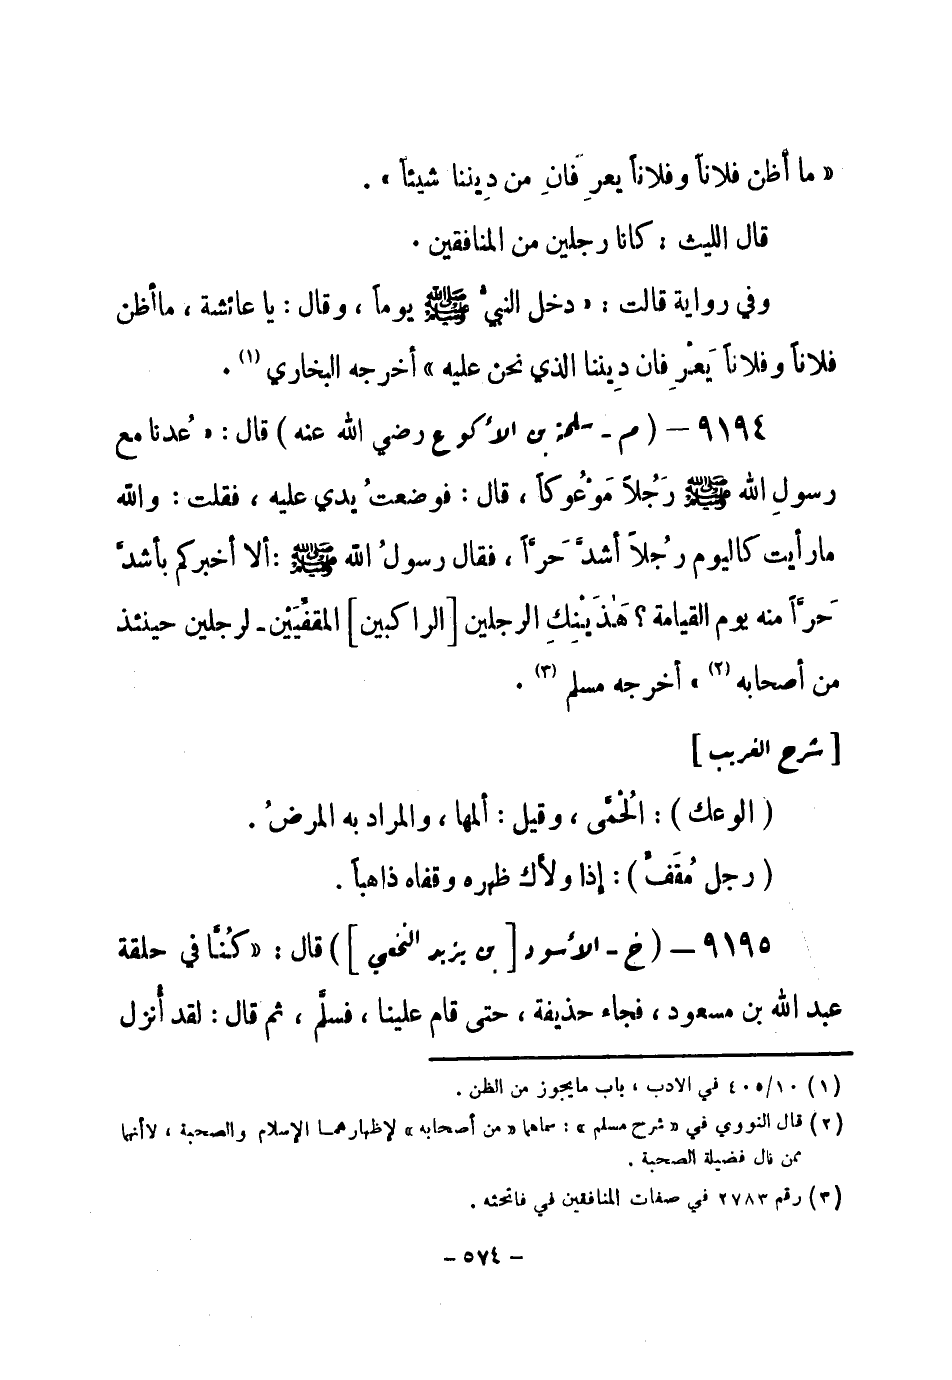 « ما أظن فلاناً وفلاناً يعرِفَانِ من دِيننا شيئاً » .
قال الليث : كانا رجلين من المنافقين .
وفي رواية قالت : « دخل النبيُّ ﷺ يوماً ، وقال : يا عائشة ، ما أظن
فلاناً وفلاناً يَعْرِفان دِيننا الذي نحن عليه » أخرجه البخاري (١) .
٩١٩٤ — ( م ـ سلمة بن الأكوع رضي الله عنه ) قال : « عُدنا مع
رسولِ الله ﷺ رَجُلاً مَوْعُوكاً ، قال : فوضعتُ يدي عليه ، فقلت : والله
ما رأيت كاليوم رجُلاً أشدَّ حَرَّاً ، فقال رسولُ الله ﷺ : ألا أخبركم بأشدَّ
حَرَّاً منه يوم القيامة ؟ هٰذَيْنِكِ الرجلين [الراكبين] المقفِّيَيْن ـ لرجلين حينئذ
من أصحابه (٢) » أخرجه مسلم (٣) .
[ شرح الغريب ]
( الوعك ) : الحُمَّى ، وقيل : ألمها ، والمراد به المرضُ .
( رجل مُقَفٍّ ) : إذا ولَّاك ظهره وقفاه ذاهباً .
٩١٩٥ — ( خ ـ الأسود [ بن يزيد النخعي ] ) قال : « كُنَّا في حلقة
عبد الله بن مسعود ، فجاء حذيفة ، حتى قام علينا ، فسلَّم ، ثم قال : لقد أُنزل
(١) ٤٠٥/١٠ في الادب ، باب مايجوز من الظن .
(٢) قال النووي في « شرح مسلم » : سماهما « من أصحابه » لإظهارهما الإسلام والصحبة ، لاأنهما
ممن نال فضيلة الصحبة .
(٣) رقم ٢٧٨٣ في صفات المنافقين في فاتحته .
– ٥٧٤ –